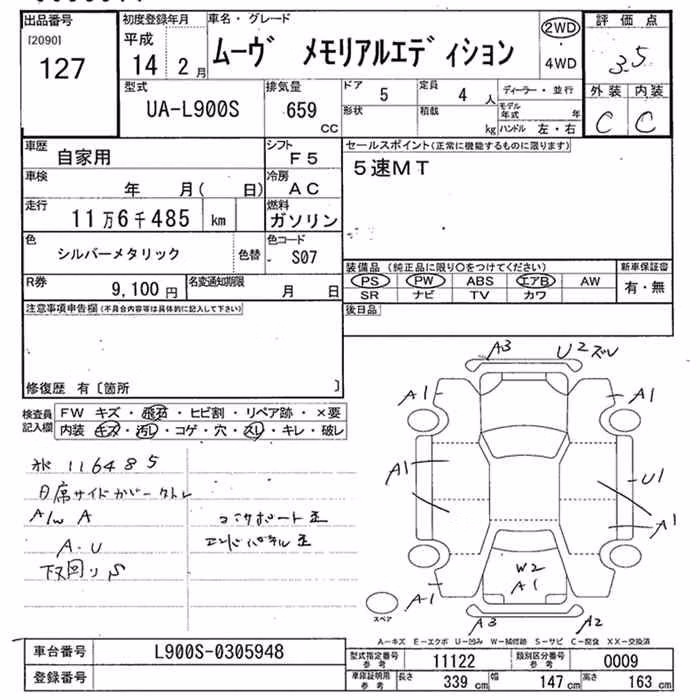 出品番号
[2090]
127
初度登録年月
平成
14年 2月
車名・グレード
ムーヴ メモリアルエディション
2WD
・
4WD
評価点
3.5
外装 内装
C C
型式
UA-L900S
排気量
659
CC
ドア
5
定員
4
人
形状
積載
kg
ディーラー・並行
モデル年式
年
ハンドル 左・右
車歴
自家用
シフト
F5
セールスポイント(正常に機能するものに限ります)
5速MT
車検
年 月( 日)
冷房
AC
走行
11万6千485 km
燃料
ガソリン
色
シルバーメタリック
色替
色コード
- S07
R券
9,100 円
名変通知期限
月 日
装備品 (純正品に限り○をつけてください)
PS PW ABS エアB AW
SR ナビ TV カワ
新車保証書
有・無
注意事項申告欄(不具合内容等は具体的に記入して下さい)
後日品
修復歴 有〔箇所 〕
検査員
記入欄
FW キズ・飛石・ヒビ割・リペア跡・×要
内装 キズ・汚レ・コゲ・穴・スレ・キレ・破レ
116485
A/W A
A・U
コアサポート歪
エンドパネル歪
下回りS
A3
U2 ズレ
A1
A1
A1
U1
A1
W2
A1
A1
A3
A2
スペア
A-キズ E-エクボ U-凹み W-補修跡 S-サビ C-腐食 XX-交換済
車台番号
L900S-0305948
登録番号
型式指定番号
参考
11122
類別区分番号
参考
0009
車庫証明用
参考
長さ
339 cm
幅
147 cm
高さ
163 cm